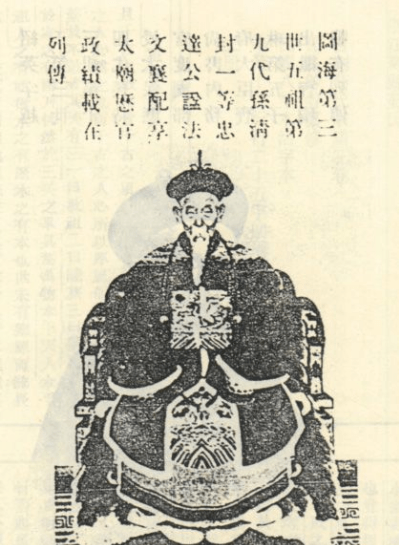 圖海第三
世五祖第
九代孫清
封一等忠
達公諡法
文襄配享
太廟歷官
政績載在
列傳